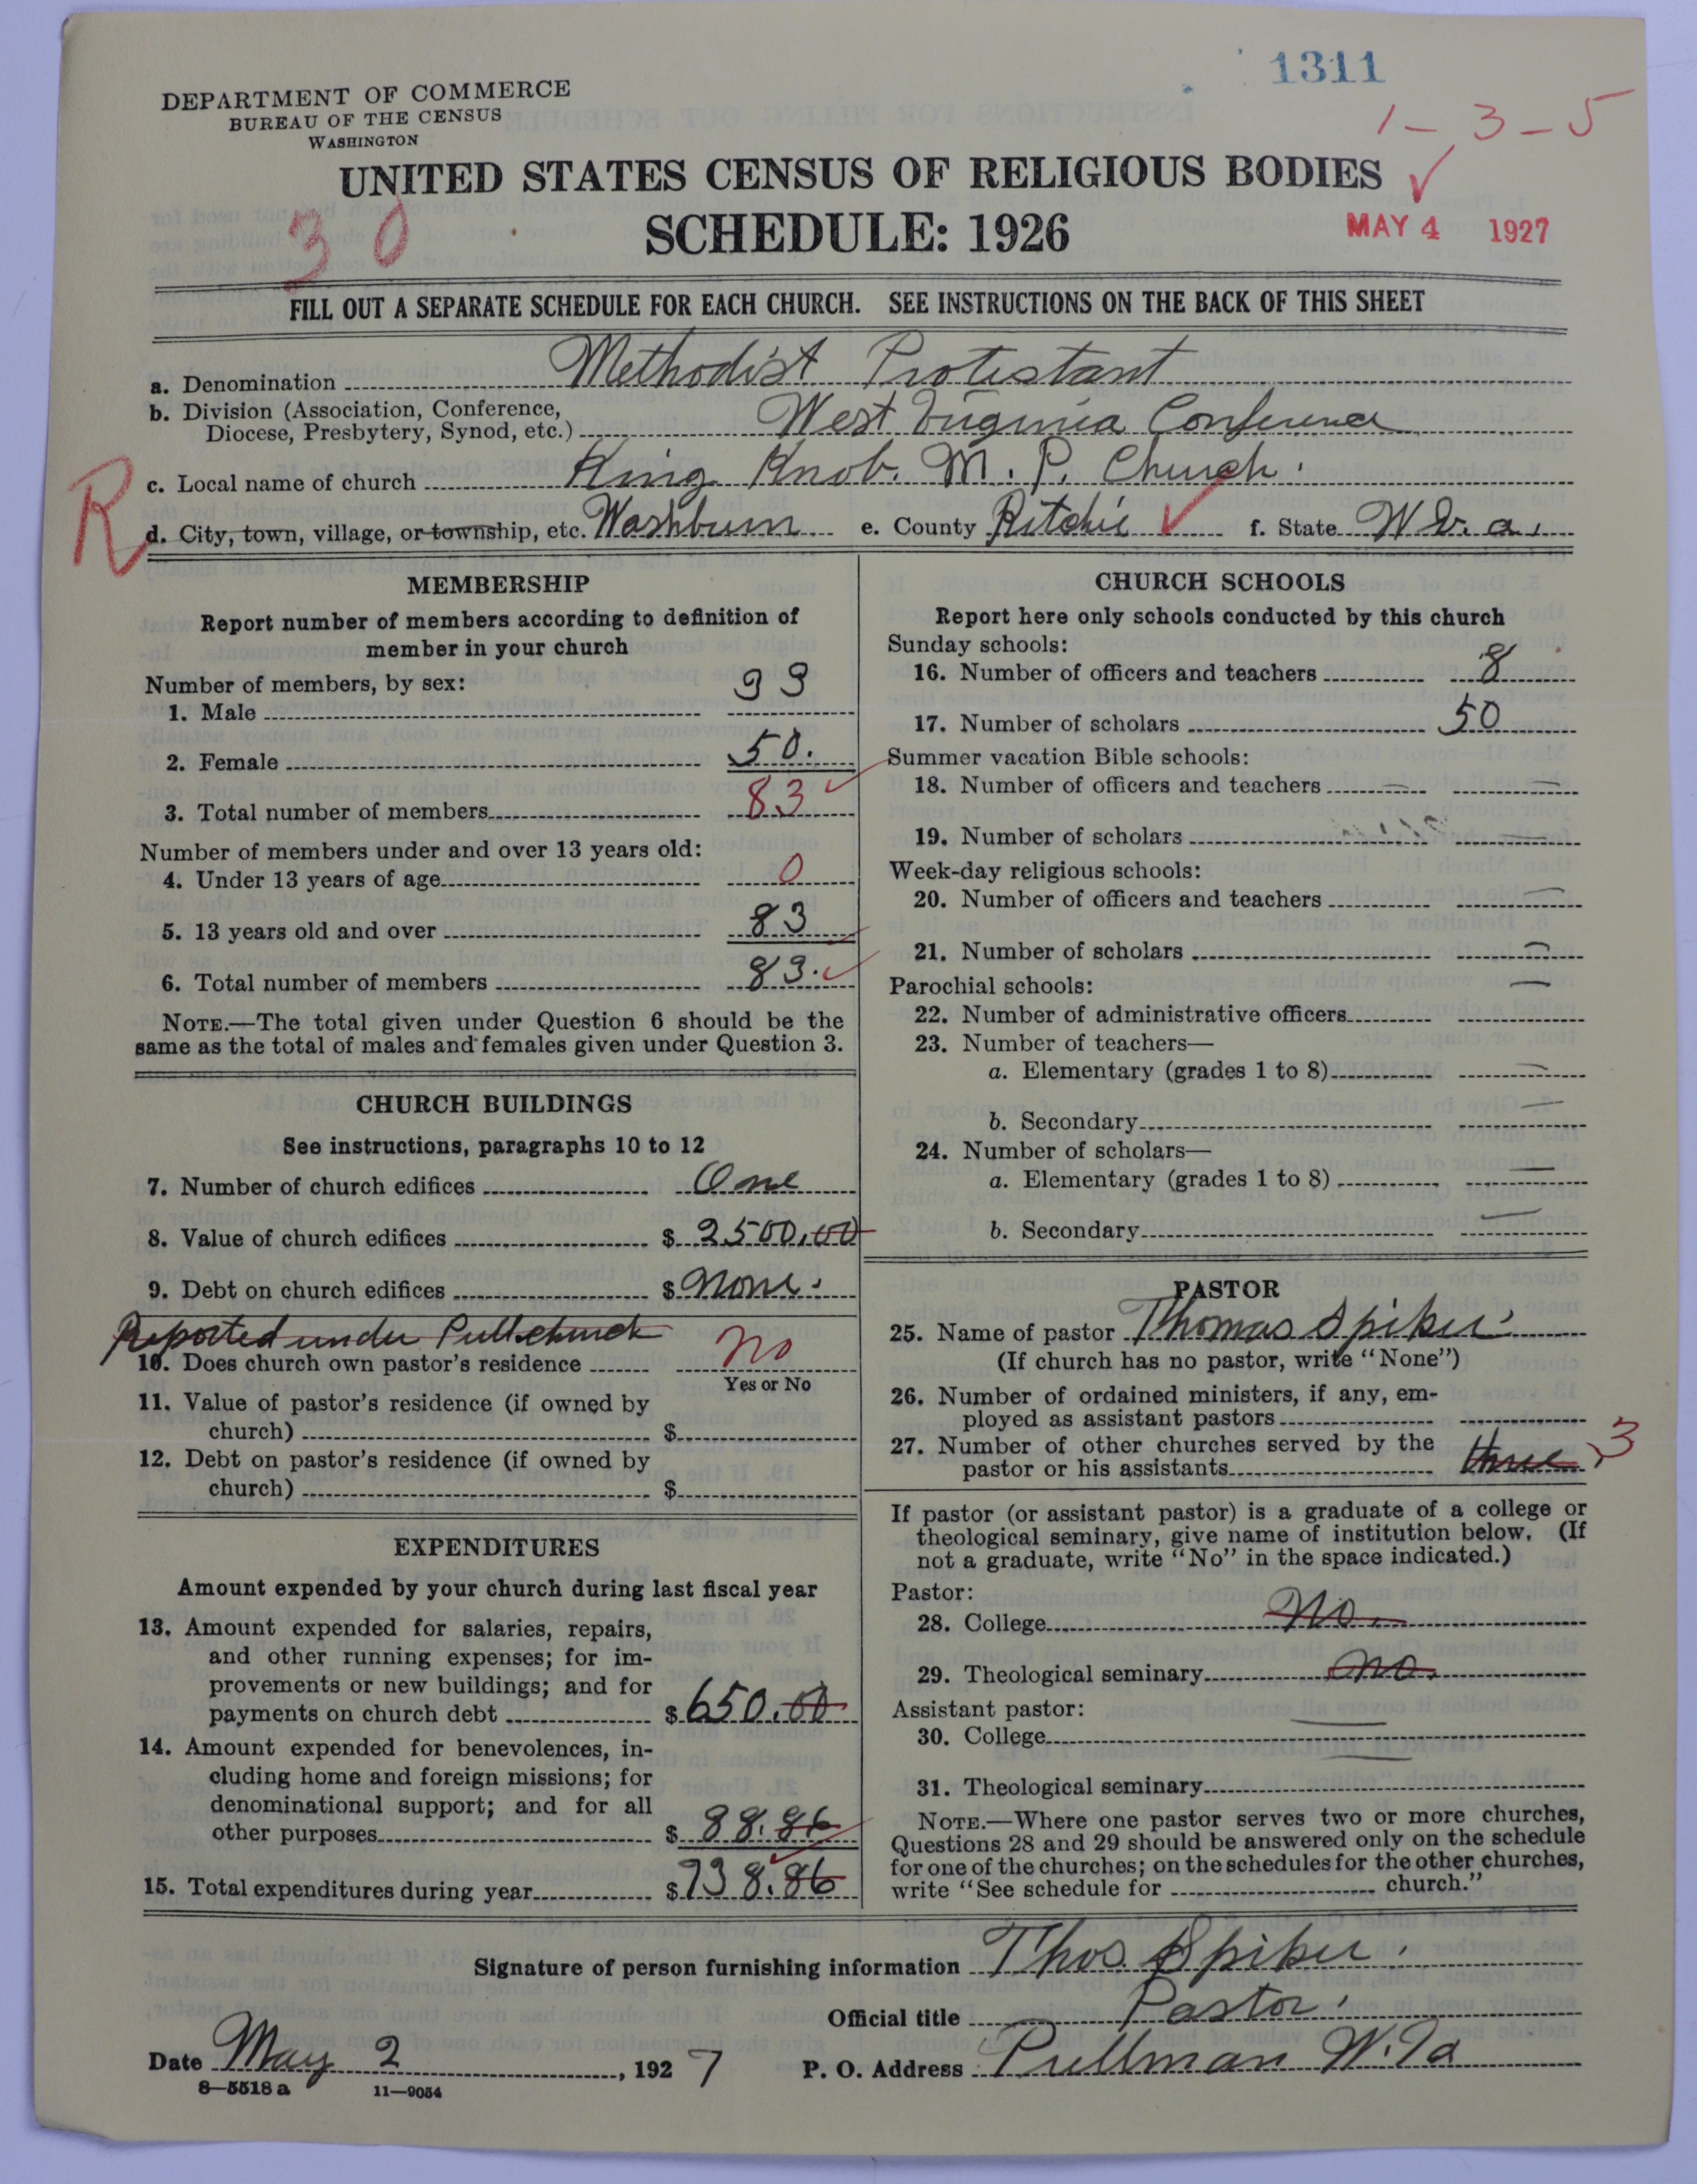 1311
DEPARTMENT OF COMMERCE
BUREAU OF THE CENSUS
WASHINGTON
1-3-5
UNITED STATES CENSUS OF RELIGIOUS BODIES
SCHEDULE: 1926
30
MAY 4 1927
FILL OUT A SEPARATE SCHEDULE FOR EACH CHURCH. SEE INSTRUCTIONS ON THE BACK OF THIS SHEET
a. Denomination Methodist Protestant
b. Division (Association, Conference,
Diocese, Presbytery, Synod, etc.) West Virginia Conference
R
c. Local name of church King Knob. M. P. Church.
d. City, town, village, or township, etc. Washburn e. County Ritchie f. State W Va.
MEMBERSHIP
Report number of members according to definition of
member in your church
Number of members, by sex:
1. Male 33
2. Female 50.
3. Total number of members 83
Number of members under and over 13 years old:
4. Under 13 years of age 0
5. 13 years old and over 83
6. Total number of members 83.
NOTE.—The total given under Question 6 should be the
same as the total of males and females given under Question 3.
CHURCH BUILDINGS
See instructions, paragraphs 10 to 12
7. Number of church edifices One
8. Value of church edifices $ 2500.00
9. Debt on church edifices $ None.
Reported under Pull. church
10. Does church own pastor's residence no
Yes or No
11. Value of pastor's residence (if owned by
church) $
12. Debt on pastor's residence (if owned by
church) $
EXPENDITURES
Amount expended by your church during last fiscal year
13. Amount expended for salaries, repairs,
and other running expenses; for im-
provements or new buildings; and for
payments on church debt $ 650.00
14. Amount expended for benevolences, in-
cluding home and foreign missions; for
denominational support; and for all
other purposes $ 88.86
15. Total expenditures during year $ 738.86
CHURCH SCHOOLS
Report here only schools conducted by this church
Sunday schools:
16. Number of officers and teachers 8
17. Number of scholars 50
Summer vacation Bible schools:
18. Number of officers and teachers —
19. Number of scholars —
Week-day religious schools:
20. Number of officers and teachers —
21. Number of scholars —
Parochial schools:
22. Number of administrative officers —
23. Number of teachers—
a. Elementary (grades 1 to 8) —
b. Secondary —
24. Number of scholars—
a. Elementary (grades 1 to 8) —
b. Secondary —
PASTOR
25. Name of pastor Thomas Spiker
(If church has no pastor, write "None")
26. Number of ordained ministers, if any, em-
ployed as assistant pastors
27. Number of other churches served by the
pastor or his assistants three 3
If pastor (or assistant pastor) is a graduate of a college or
theological seminary, give name of institution below. (If
not a graduate, write "No" in the space indicated.)
Pastor:
28. College No.
29. Theological seminary no.
Assistant pastor:
30. College —
31. Theological seminary —
NOTE.—Where one pastor serves two or more churches,
Questions 28 and 29 should be answered only on the schedule
for one of the churches; on the schedules for the other churches,
write "See schedule for church."
Signature of person furnishing information Thos. Spiker.
Official title Pastor.
Date May 2, 1927 P. O. Address Pullman W. Va
8—5518a 11—9054